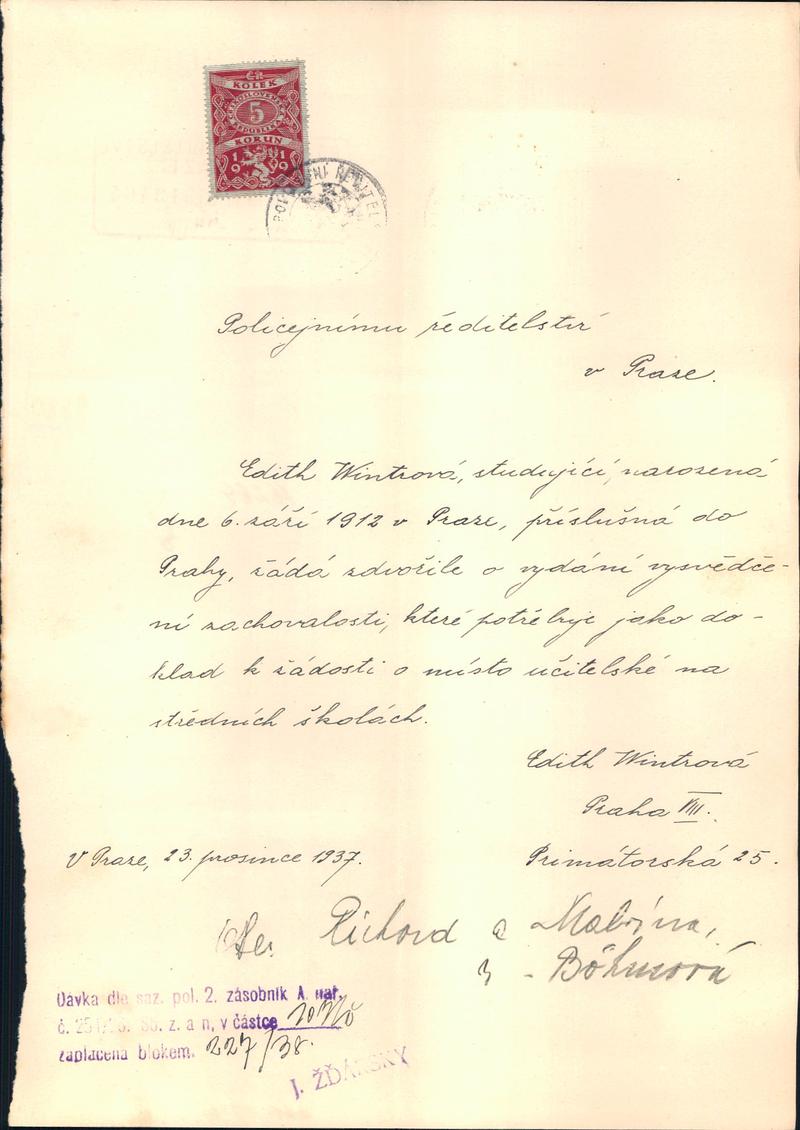 ČR
KOLEK
ČESKOSLOVENSKÁ
5
REPUBLIKA
KORUN
1919
POLICEJNÍ ŘEDITELS
Policejnímu ředitelství
v Praze.
Edith Wintrová, studující, narozená
dne 6. září 1912 v Praze, příslušná do
Prahy, žádá zdvořile o vydání vysvědče-
ní zachovalosti, které potřebuje jako do-
klad k žádosti o místo učitelské na
středních školách.
Edith Wintrová
Praha VIII.
V Praze, 23. prosince 1937.
Primátorská 25.
Richard a Malvína,
r - Böhmová
Dávka dle saz. pol. 2. zásobník A. nař.
z. a n, v částce 10 Kč
zaplacena blokem. 227/38.
J. ŽĎÁRSKÝ